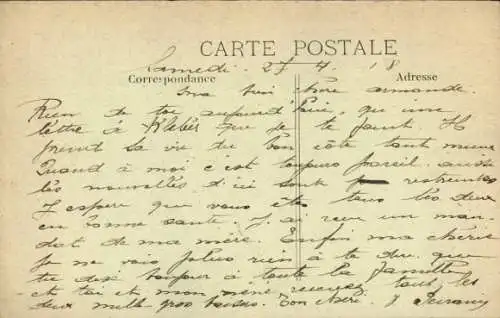 CARTE POSTALE
Samedi 27 4 18
Correspondance Adresse
ma bien chère Armande.
Rien de toi aujourd'hui, qu'une
lettre à que je te joint. Il
prend sa vie du bon côté tant mieux
Quand à moi c'est toujours pareil. aussi
les nouvelles d'ici sont restreintes
J'espère que vous êtes tous les deux
en bonne santé. J'ai reçu un man
dat de ma mère. Enfin ma chérie
Je ne vois plus rien à te dire que
te dire bonjour à toute la famille
et toi et mon recevez tous les
deux mille gros baisers. Ton chéri.